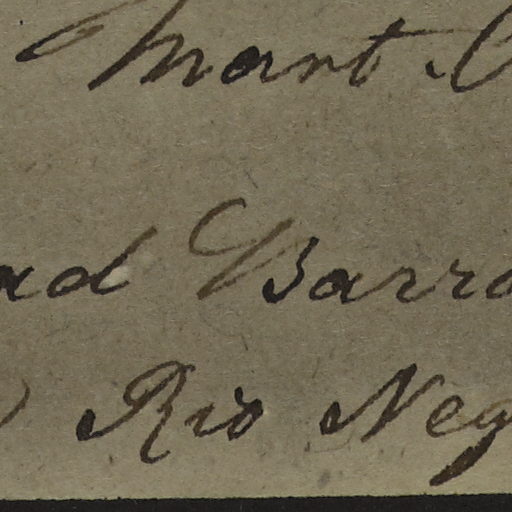 Mart.
ad Barra
Rio Neg